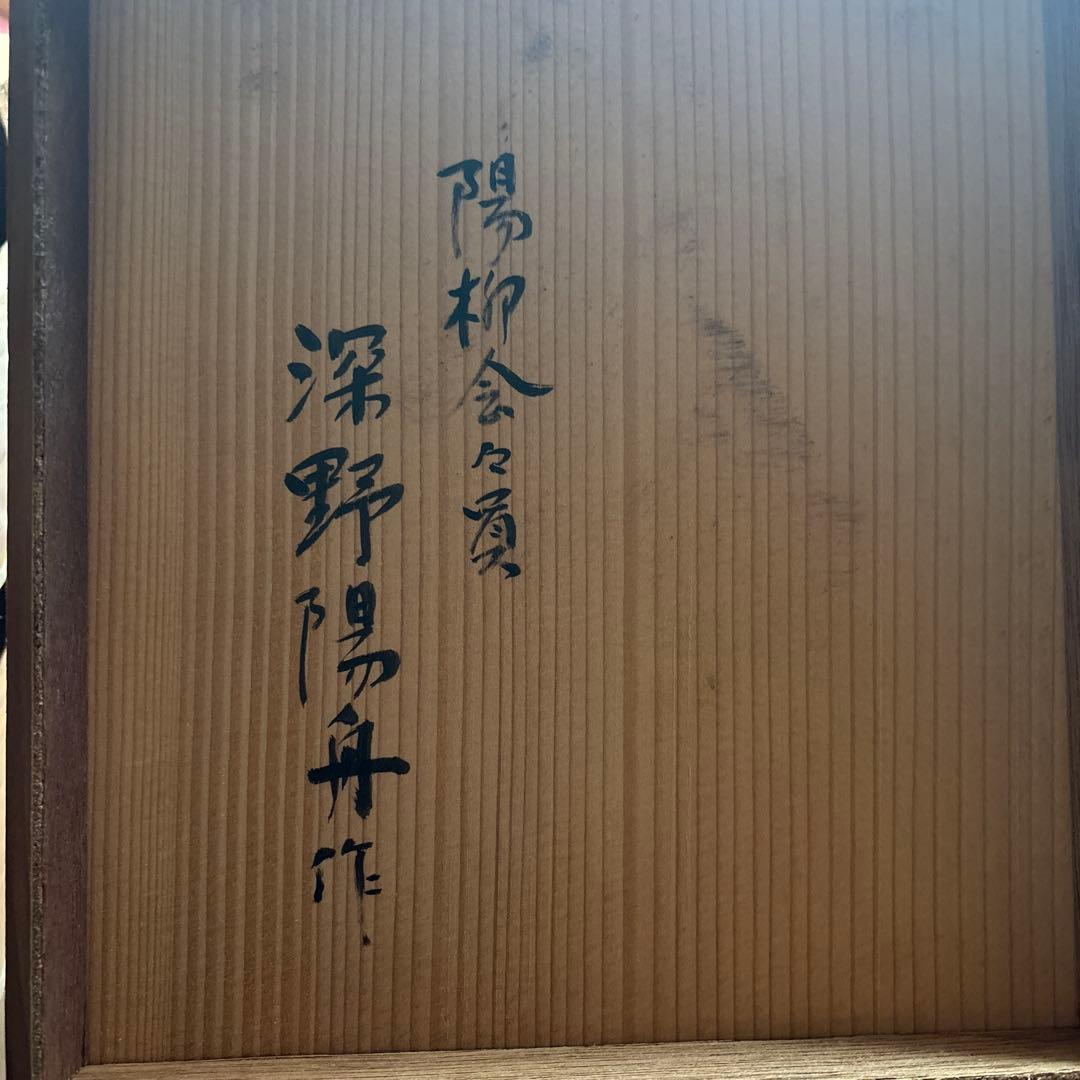 陽柳会々員
深野陽舟作